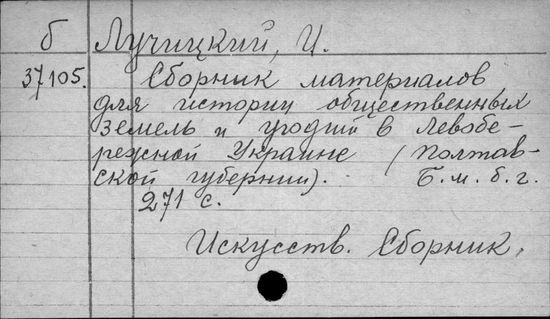 б Лучицкий, И.
37105. Сборник материалов
для истории общественных
земель и угодий в Левобе-
режной Украине (Полтав-
ской губернии). Б. м. б. г.
271 с.
Искусств. Сборник.